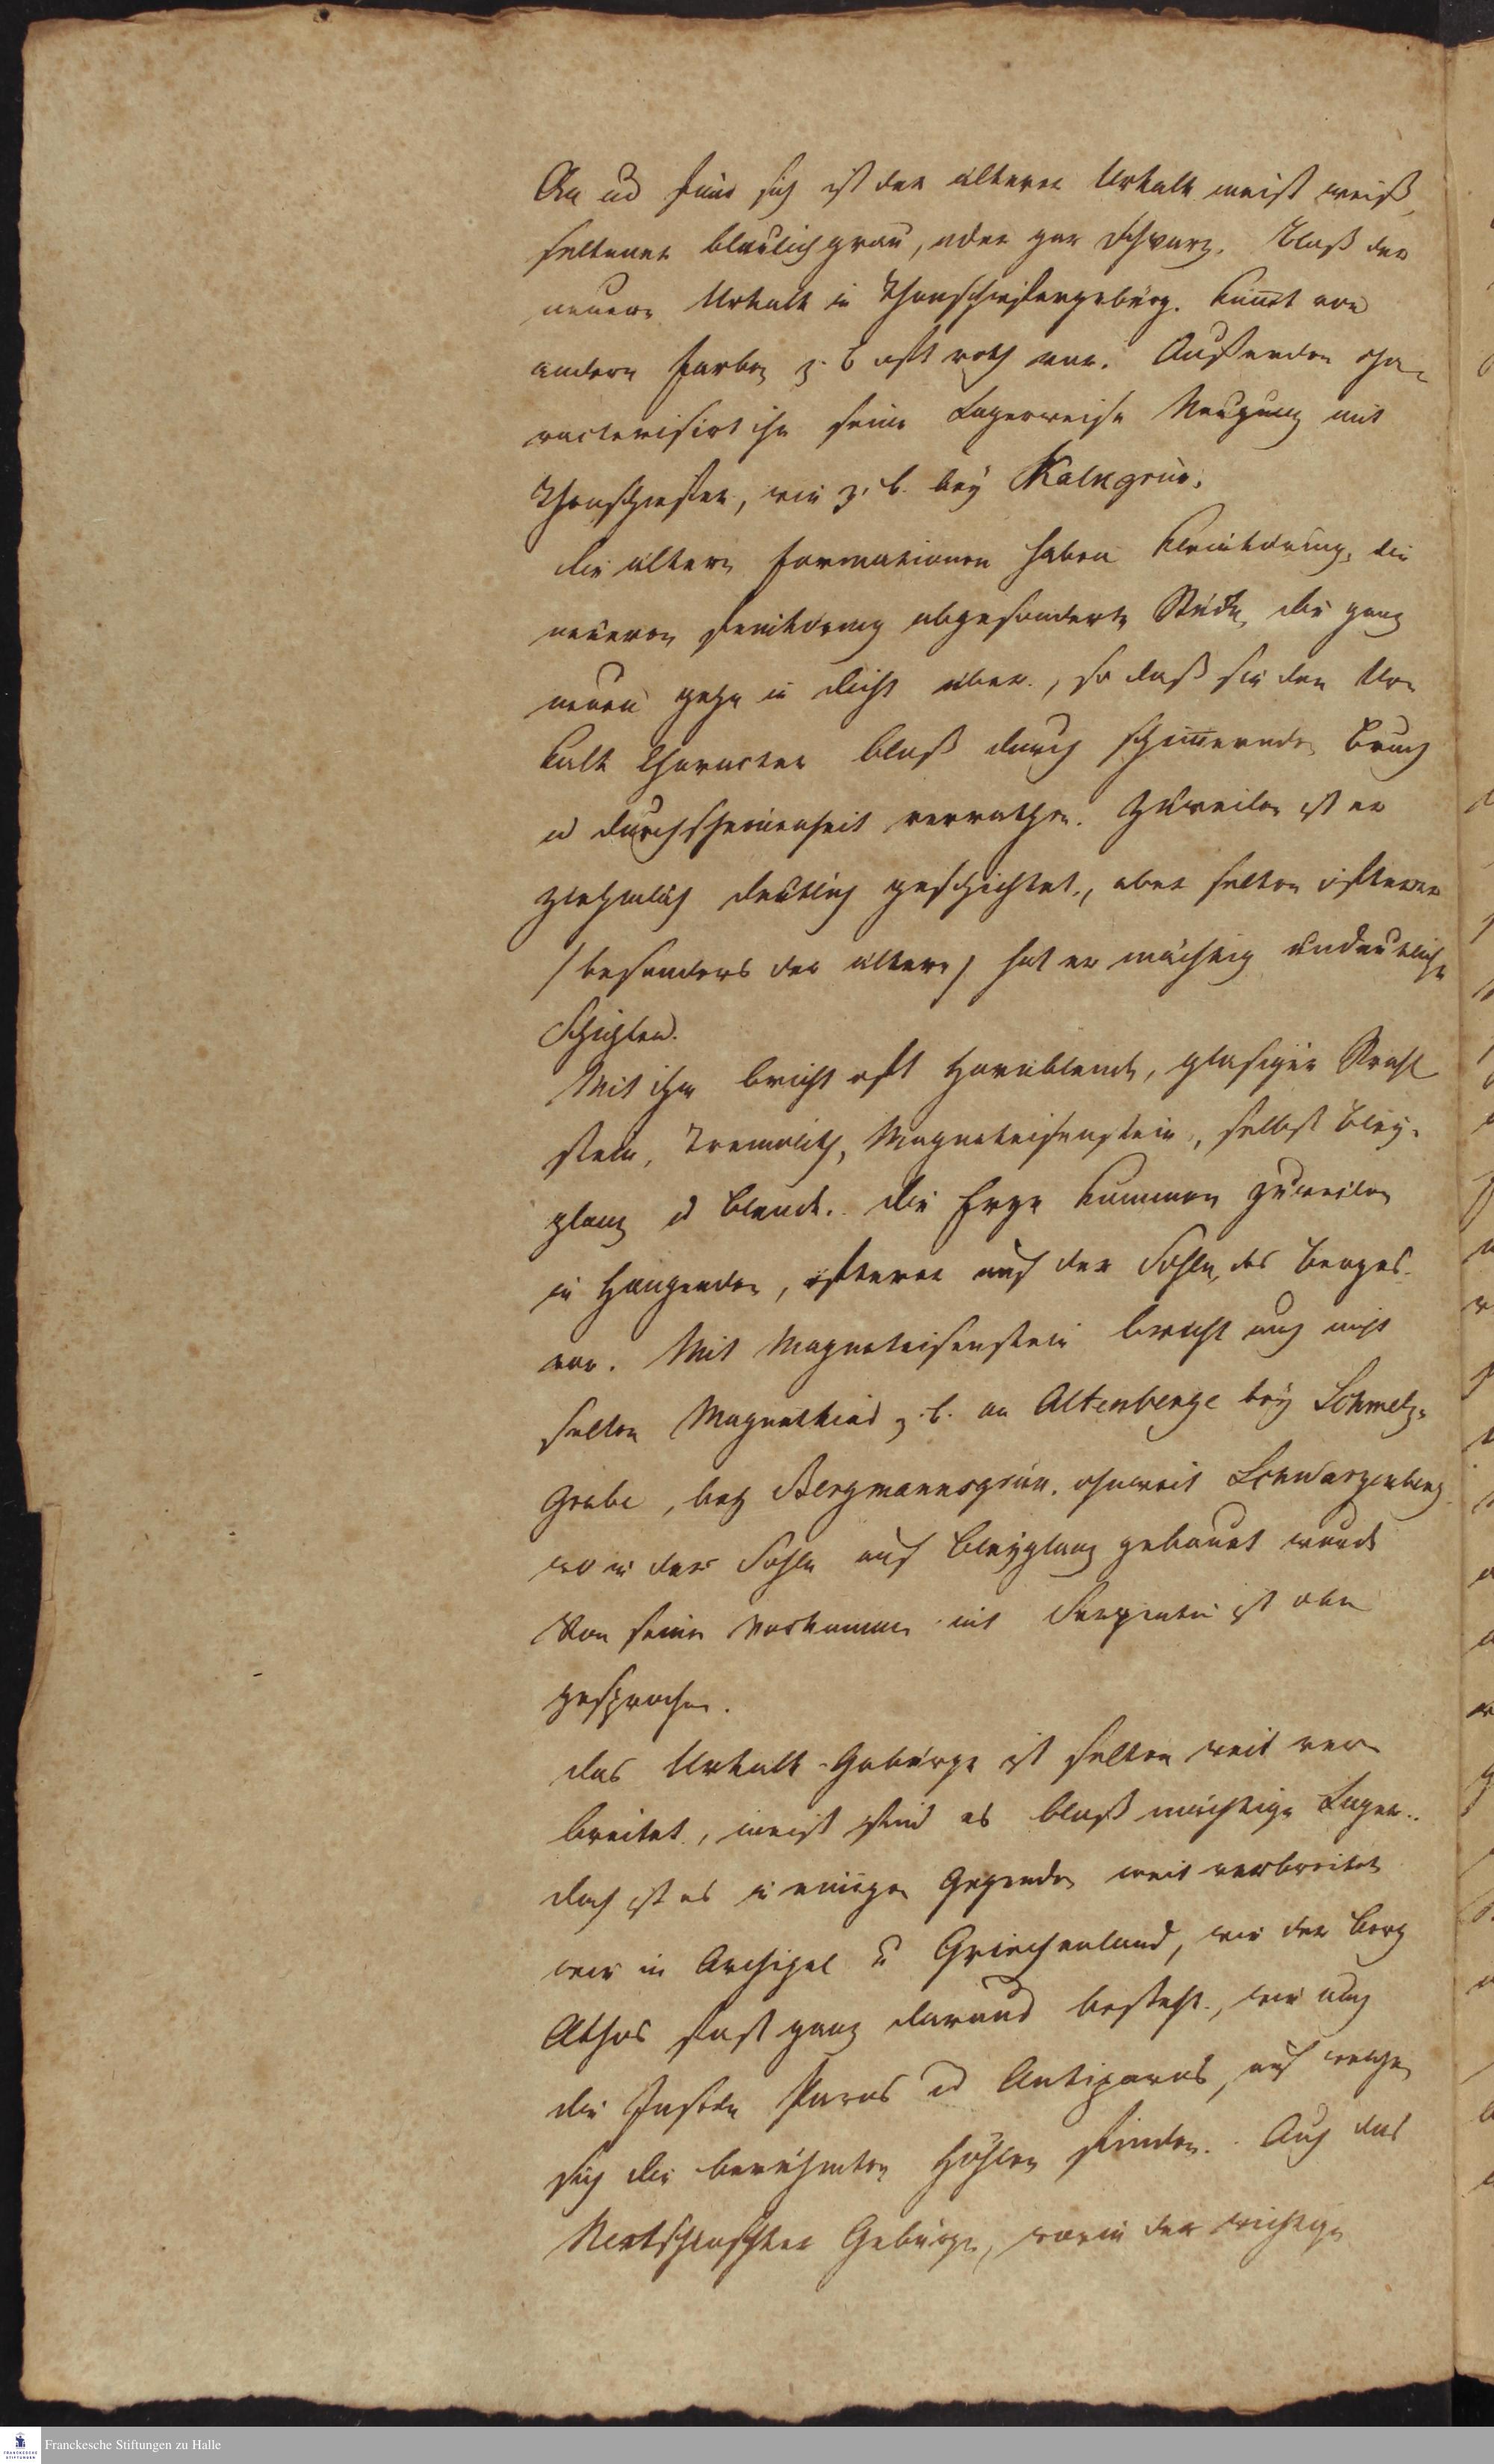 An und für sich ist der ältere Urkalk meist weiß,
seltener blaulichgrau, oder gar schwarz. Blaß der
neuere Urkalk in Thonschiefergebürg. kom̅t von
andern Farben z. B oft roth vor. Außerdem cha-
racterisirt ihn seine Lagerweise Neigung mit
Thonschiefer, wie z. b. bey Kalkgrün.
die ältern Formationen haben kleinkörnig, die
neueren feinkörnig abgesonderte Stücke, die ganz
neuen gehn in dicht über, so daß sie den Ur-
kalk Character bloß durch schim̅ernden Bruch
u durchscheinenheit verrathen. Zuweilen ist er
ziehmlich deutlich geschichtet, aber selten öfterer
/ besonders der ältere / hat er mächtig undeutliche
Schichten.
Mit ihm bricht oft Hornblende, glasiger Strahl
stein, Tremolith, Magneteisenstein, selbst Bley-
glanz u Blende. die Erze kommen zuweilen
in Hangenden, öfterer auf der Sohle, des Berges
vor. Mit Magneteisenstein bricht auch nicht
selten Magnetkies z. b. am Altenberge bey Schmelz-
Grabe, bey Bergmannsgrün, ohnweit Schwarzenberg
wo in der Sohle auf Bleyglanz gebauet wurde
Von seinen Vorkommen mit Serpentin ist oben
gesprochen.
das Urkalk-Gebürge ist selten weit ver-
breitet, meist sind es bloß mächtige Lager.
doch ist es in einigen Gegenden weit verbreitet
wie in Archipel u Griechenland, wie der Berg
Athos fast ganz daraus besteht, wie auch
die Inseln Paros u Antiparos, auf welchen
sich die berühmten Höhlen finden. Auch das
Nertschinsker Gebürge, worin der wichtige
Franckesche Stiftungen zu Halle